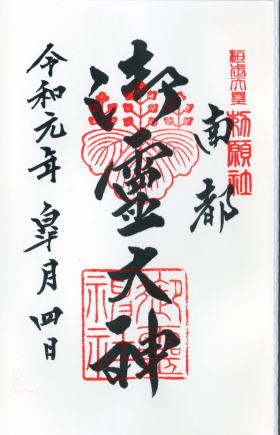 桓武天皇
勅願社
南都
御靈大神
御靈神社
令和元年皐月四日